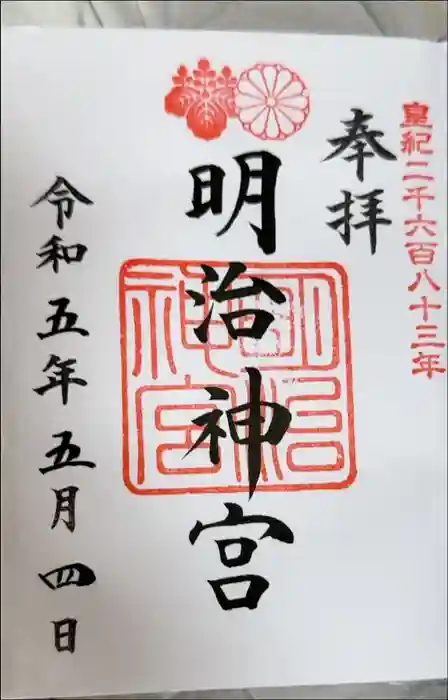 皇紀二千六百八十三年
奉拝
明治神宮
明治神宮
令和五年五月四日